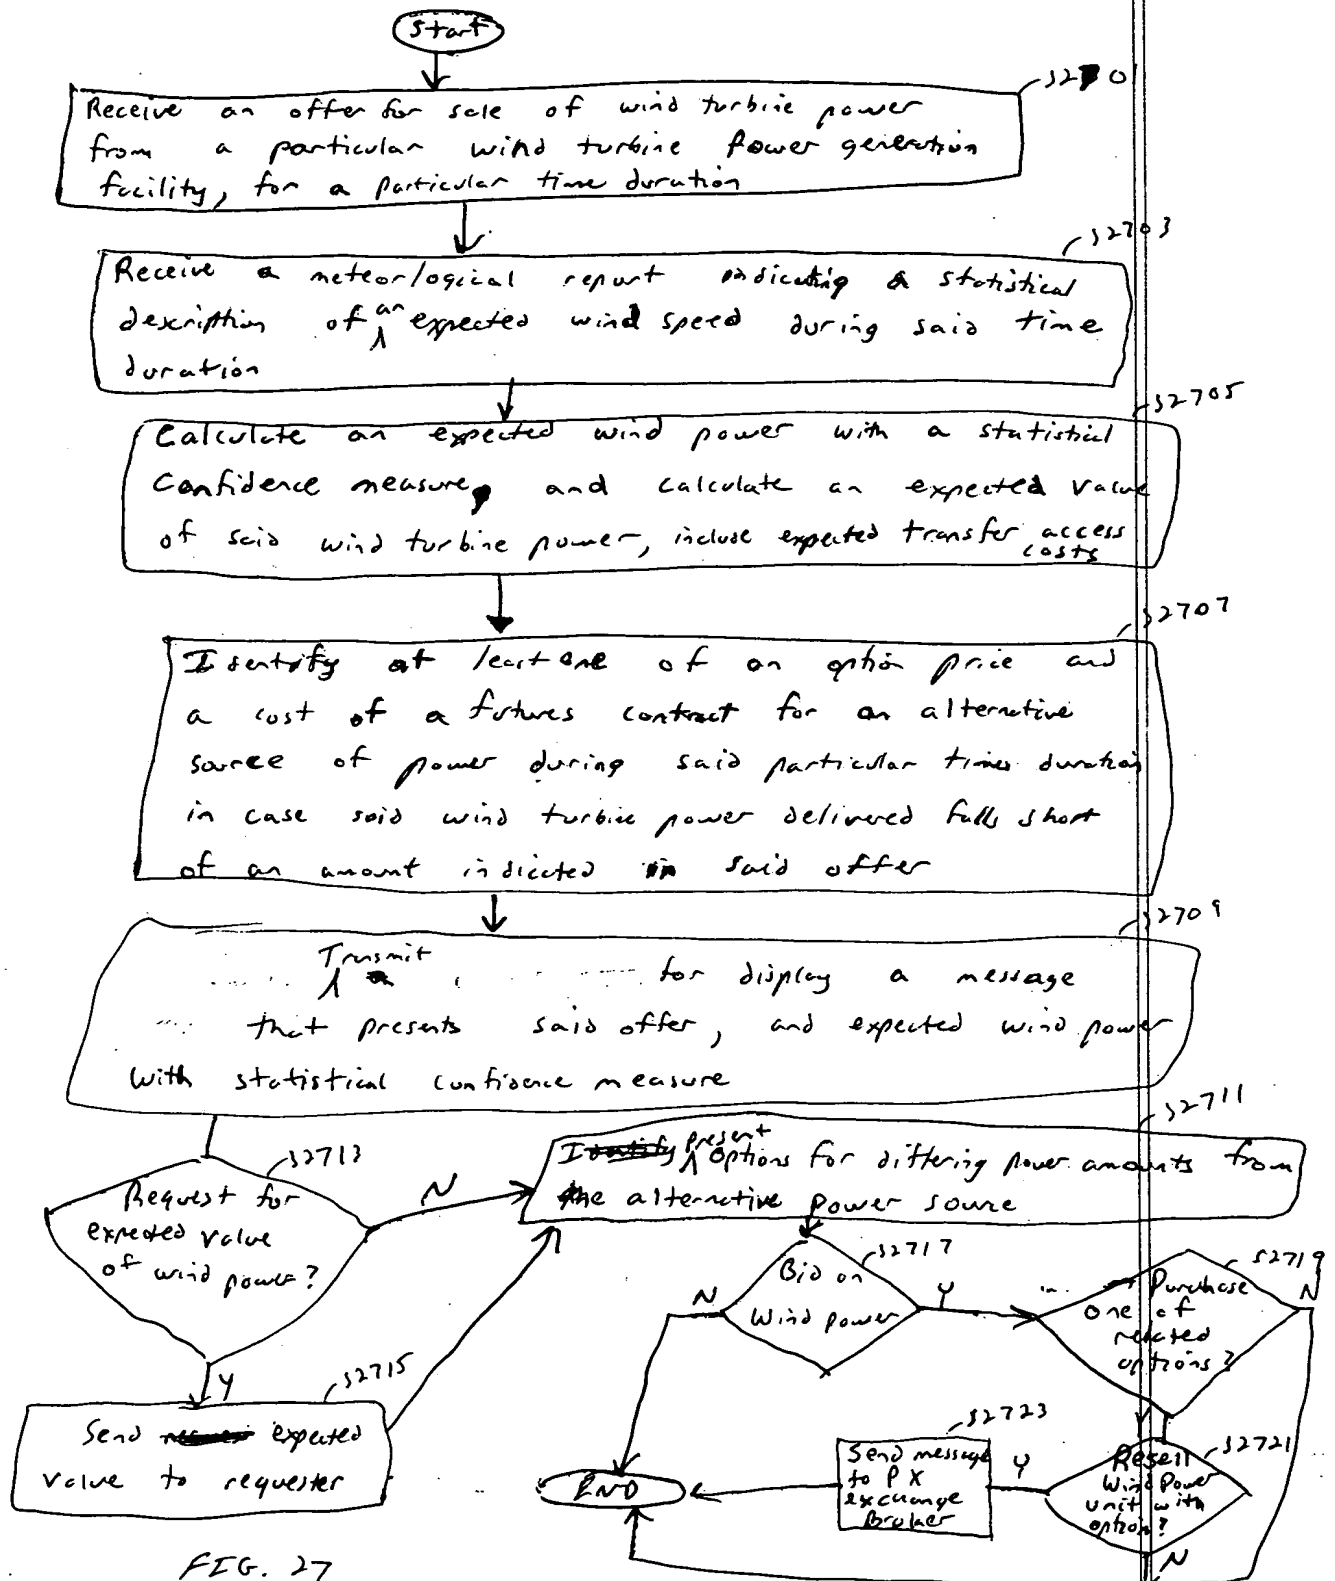 Start
S2701
Receive an offer for sale of wind turbine power
from a particular wind turbine Power generation
facility, for a particular time duration
S2703
Receive a meteorlogical report indicating a statistical
description of an expected wind speed during said time
duration
S2705
Calculate an expected wind power with a statistical
Confidence measure, and calculate an expected value
of said wind turbine power, include expected transfer access
costs
S2707
Identify at least one of an option price and
a cost of a futures contract for an alternative
source of power during said particular time duration
in case said wind turbine power delivered falls short
of an amount indicated in said offer
S2709
Transmit for display a message
that presents said offer, and expected wind power
with statistical confidence measure
S2711
present options for differing power amounts from
the alternative power source
S2713
Request for
expected value
of wind power?
N
Y
S2715
Send expected
value to requester
S2717
Bid on
Wind power
N
Y
S2719
Purchase
one of
related
options?
N
Y
S2721
Resell
Wind Power
unit with
option?
Y
N
S2723
Send message
to PX
exchange
Broker
END
FIG. 27